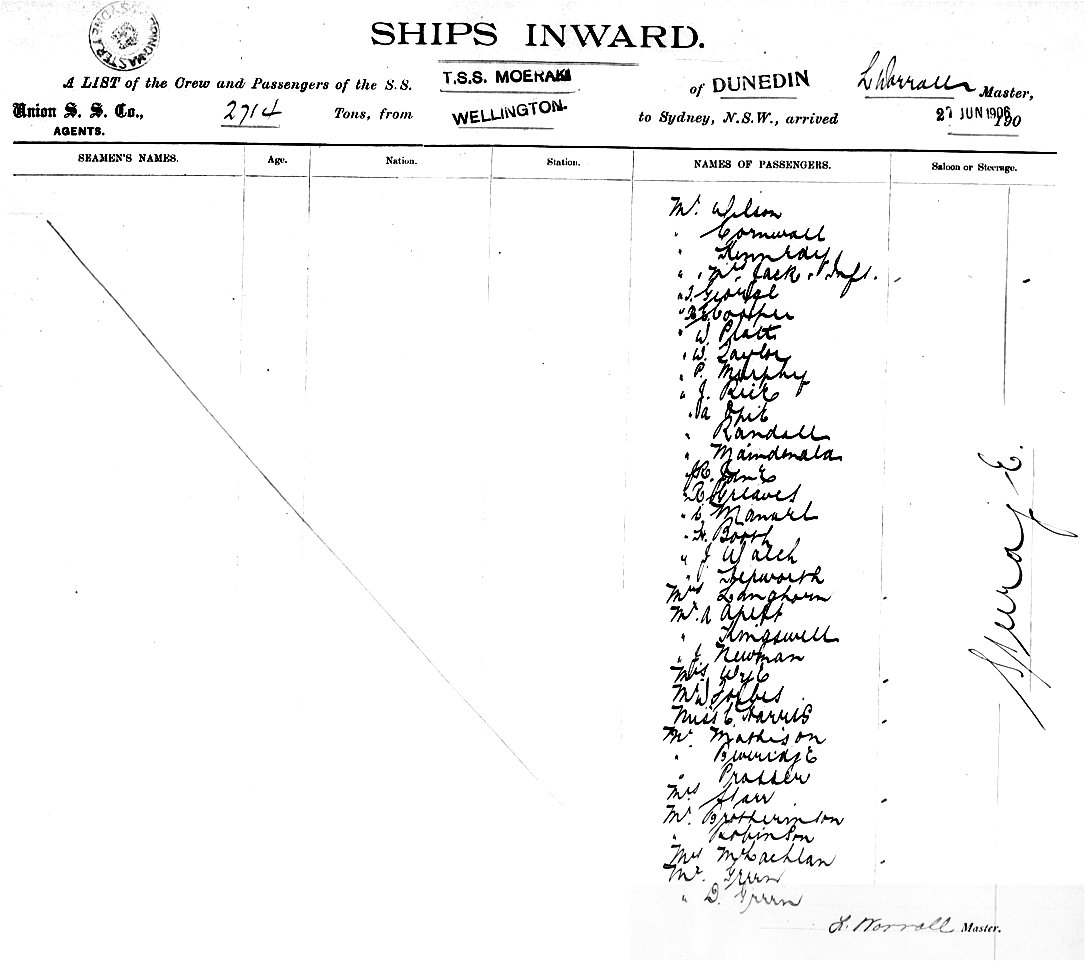 SHIPS INWARD.
A LIST of the Crew and Passengers of the S.S. T.S.S. MOERAKI of DUNEDIN L Worrall Master,
Union S. S. Co., 2714 Tons, from WELLINGTON. to Sydney, N.S.W., arrived 27 JUN 1906 190
AGENTS.
SEAMEN'S NAMES. Age. Nation. Station. NAMES OF PASSENGERS. Saloon or Steerage.
Mr. Wilson
" Cornwall
" Kennedy
" " Mrs Jack & Inft.
" J. George
" Cooper
" W. Pratt
" W. Taylor
" P. Murphy
" J. Rice
" A
" Randall
"
R. Jane
" R Greaves
" C
" H. Booth
" J. Walch
" Hepworth
Mrs Langhorn
Mr. A
" Kingswell
" J. Newman
Mrs Wye
Mr W Forbes
Miss C. Harris
Mr Mathison
" Beveridge
" Prosser
Mrs Starr
Mr. Brotherinson
" Robinson
Mrs McLachlan
Mr. Green
" D. Green
Steerage
L. Worrall Master.